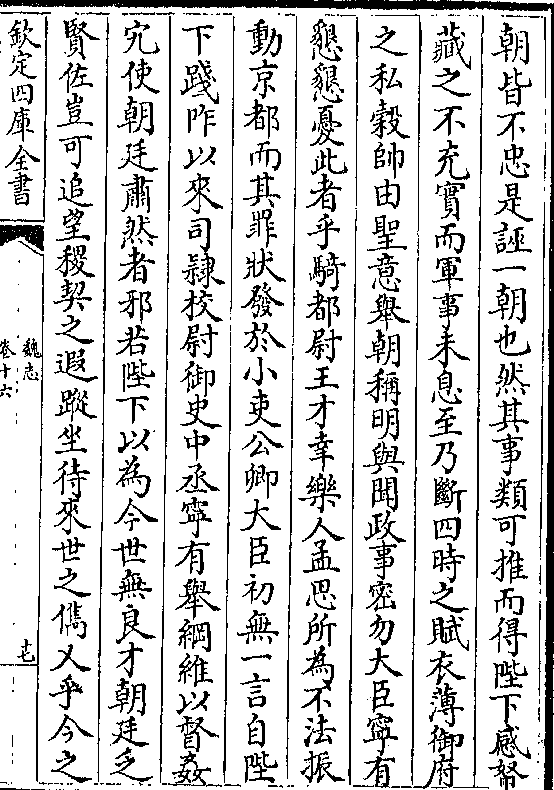 朝皆不忠是誣一朝也然其事類可推而得陛下感帑
藏之不充實而軍事未息至乃斷四時之賦衣薄御府
之私穀帥由聖意舉朝稱明與聞政事密勿大臣寧有
懇懇憂此者乎騎都尉王才幸樂人孟思所為不法振
動京都而其罪狀發於小吏公卿大臣初無一言自陛
下踐阼以來司隸校尉御史中丞寧有舉綱維以督姦
宄使朝廷肅然者邪若陛下以為今世無良才朝廷乏
賢佐豈可追望稷契之遐蹤坐待來世之儁乂乎今之
欽定四庫全書
魏志
卷十六